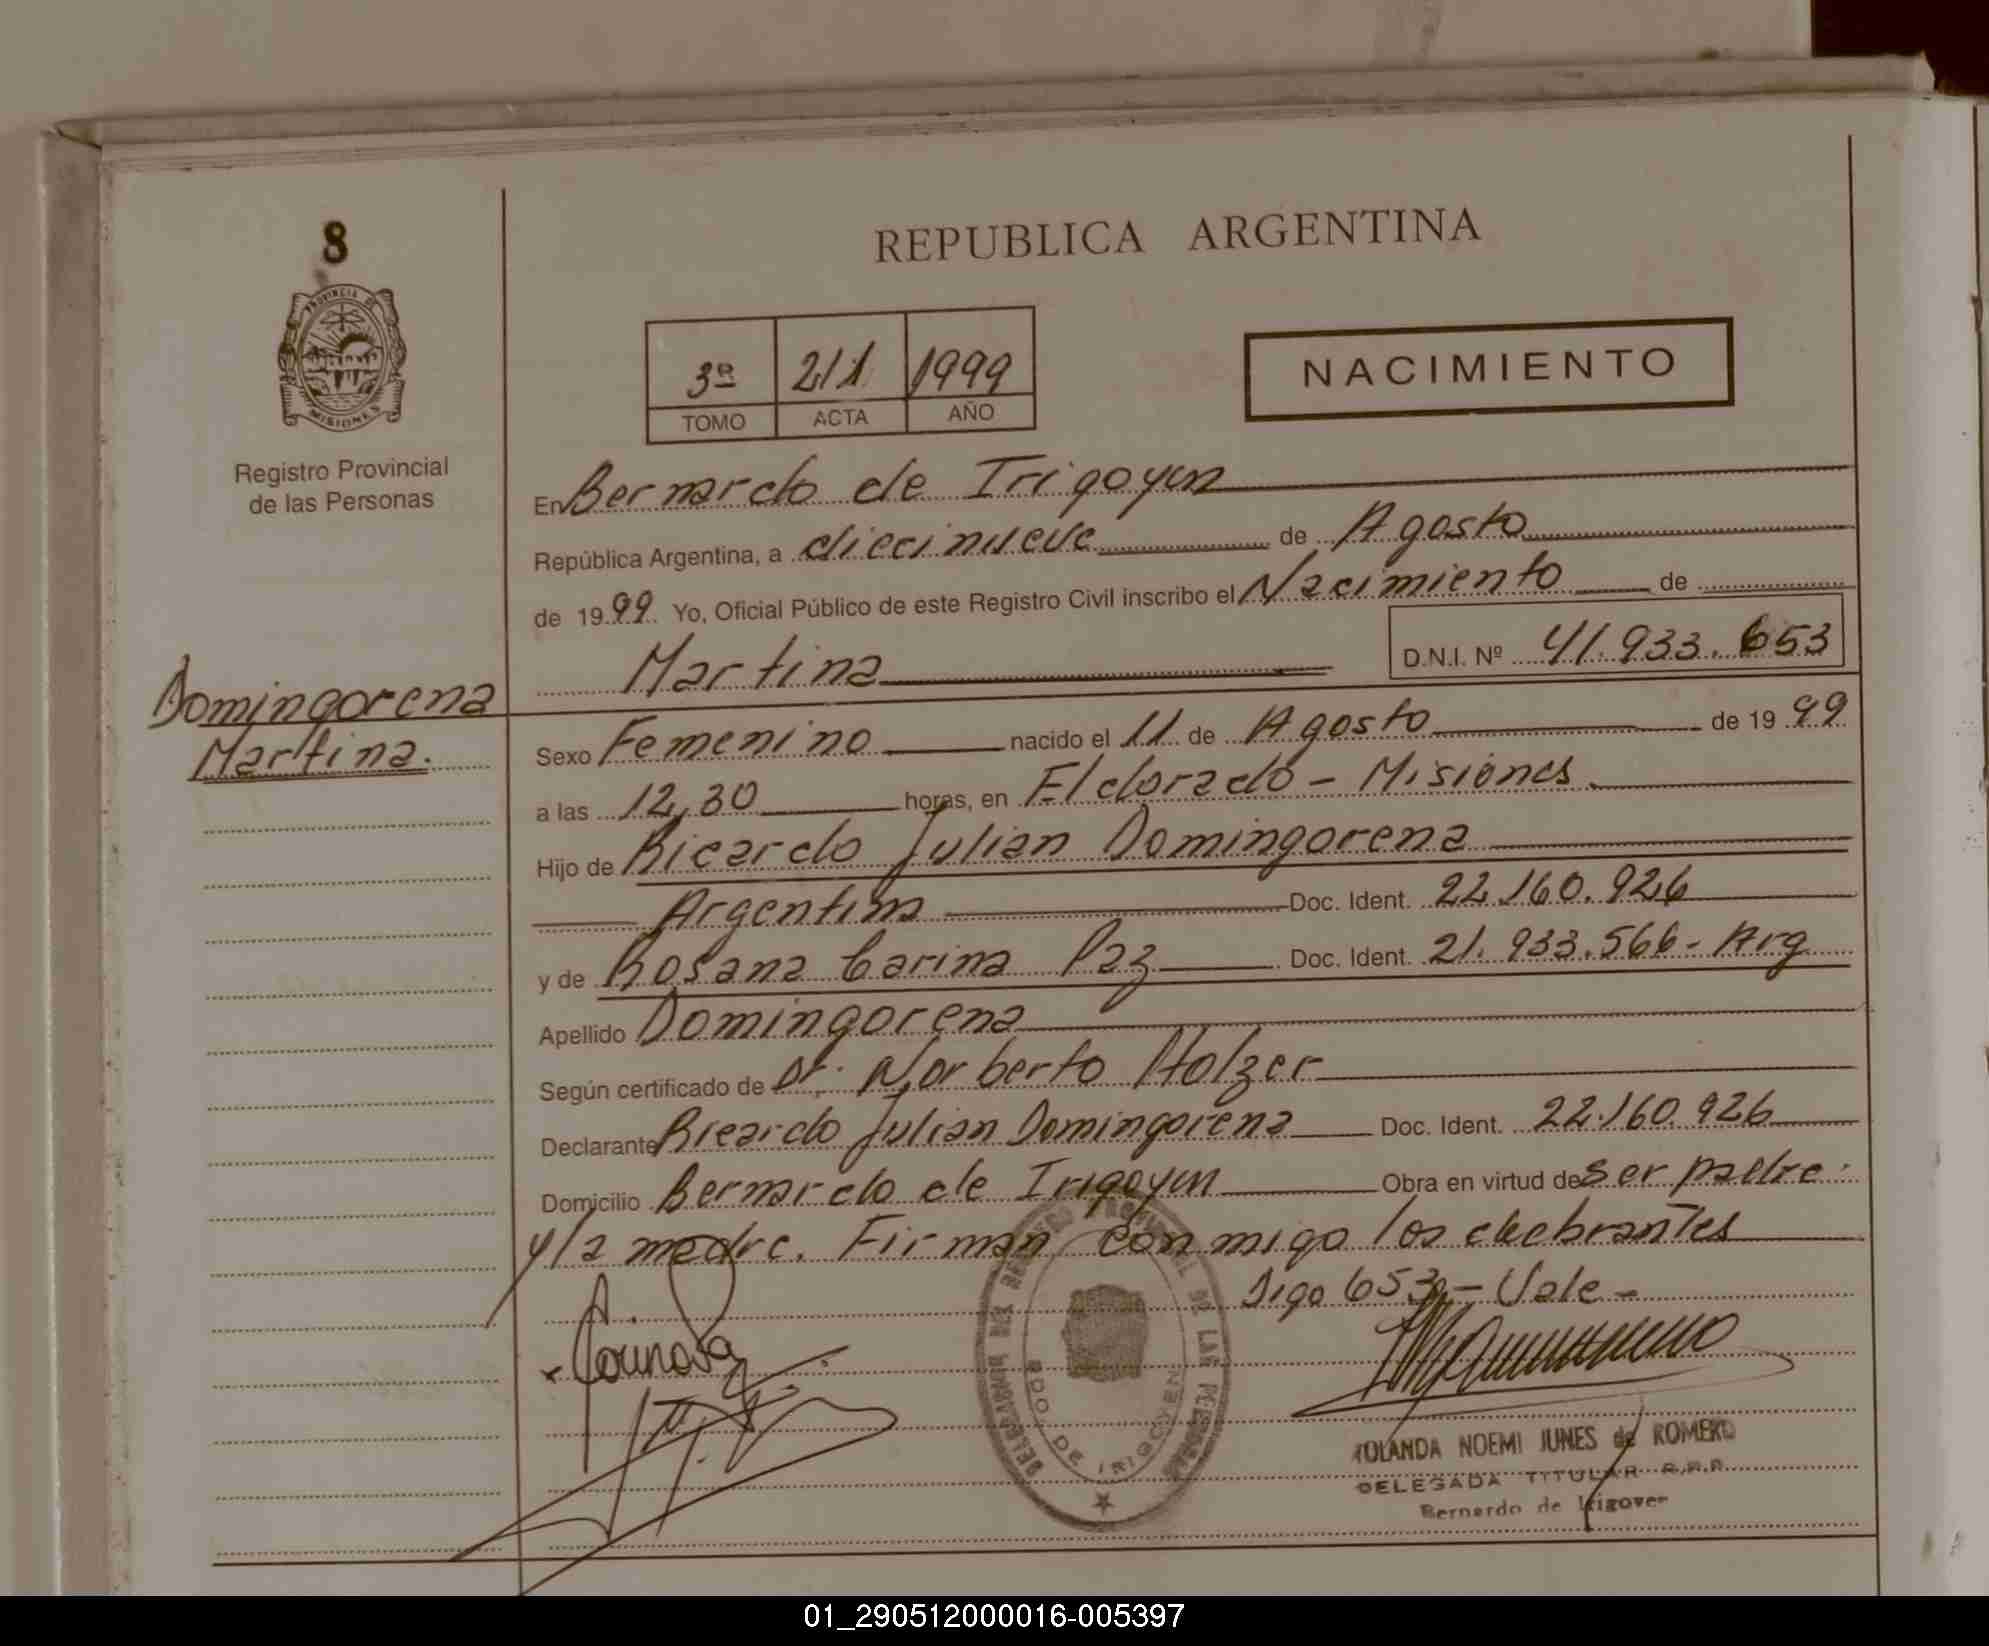 8
PROVINCIA DE
MISIONES
Registro Provincial
de las Personas
Domingorena
Martina.
REPUBLICA ARGENTINA
3º 211 1999
TOMO ACTA AÑO
NACIMIENTO
En Bernardo de Irigoyen
República Argentina, a diecinueve de Agosto
de 1999 Yo, Oficial Público de este Registro Civil inscribo el Nacimiento de
Martina D.N.I. Nº 41.933.653
Sexo Femenino nacido el 11 de Agosto de 1999
a las 12,30 horas, en Eldorado - Misiones
Hijo de Ricardo Julian Domingorena
Argentino Doc. Ident. 22.160.926
y de Rosana Carina Paz Doc. Ident. 21.933.566 - Arg
Apellido Domingorena
Según certificado de Dr. Norberto Holzer
Declarante Ricardo Julian Domingorena Doc. Ident. 22.160.926
Domicilio Bernardo de Irigoyen Obra en virtud de ser padre
y la madre. Firman conmigo los declarantes
Digo 653 - Vale -
BDO. DE IRIGOYEN
YOLANDA NOEMI JUNES de ROMERO
DELEGADA TITULAR R.P.P.
Bernardo de Irigoyen
01_290512000016-005397